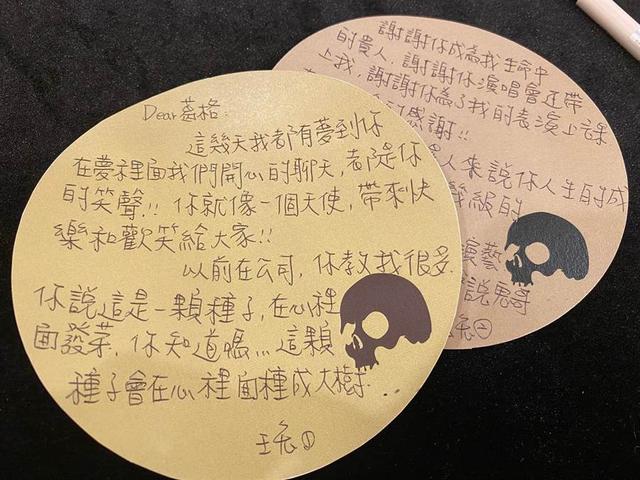 Dear 葛格:
這幾天我都有夢到你
在夢裡面我們開心的聊天,都是你
的笑聲!! 你就像一個天使,帶來快
樂和歡笑給大家!!
以前在公司,你教我很多
你說這是一顆種子,在心裡
面發芽,你知道嗎... 這顆
種子會在心裡面種成大樹...
王兔①
謝謝你成為我生命中
的貴人,謝謝你演唱會還帶
上我,謝謝你為了我的表演上
感謝!!
人來說你人生的成
等級的
演藝
說鬼哥
兔②